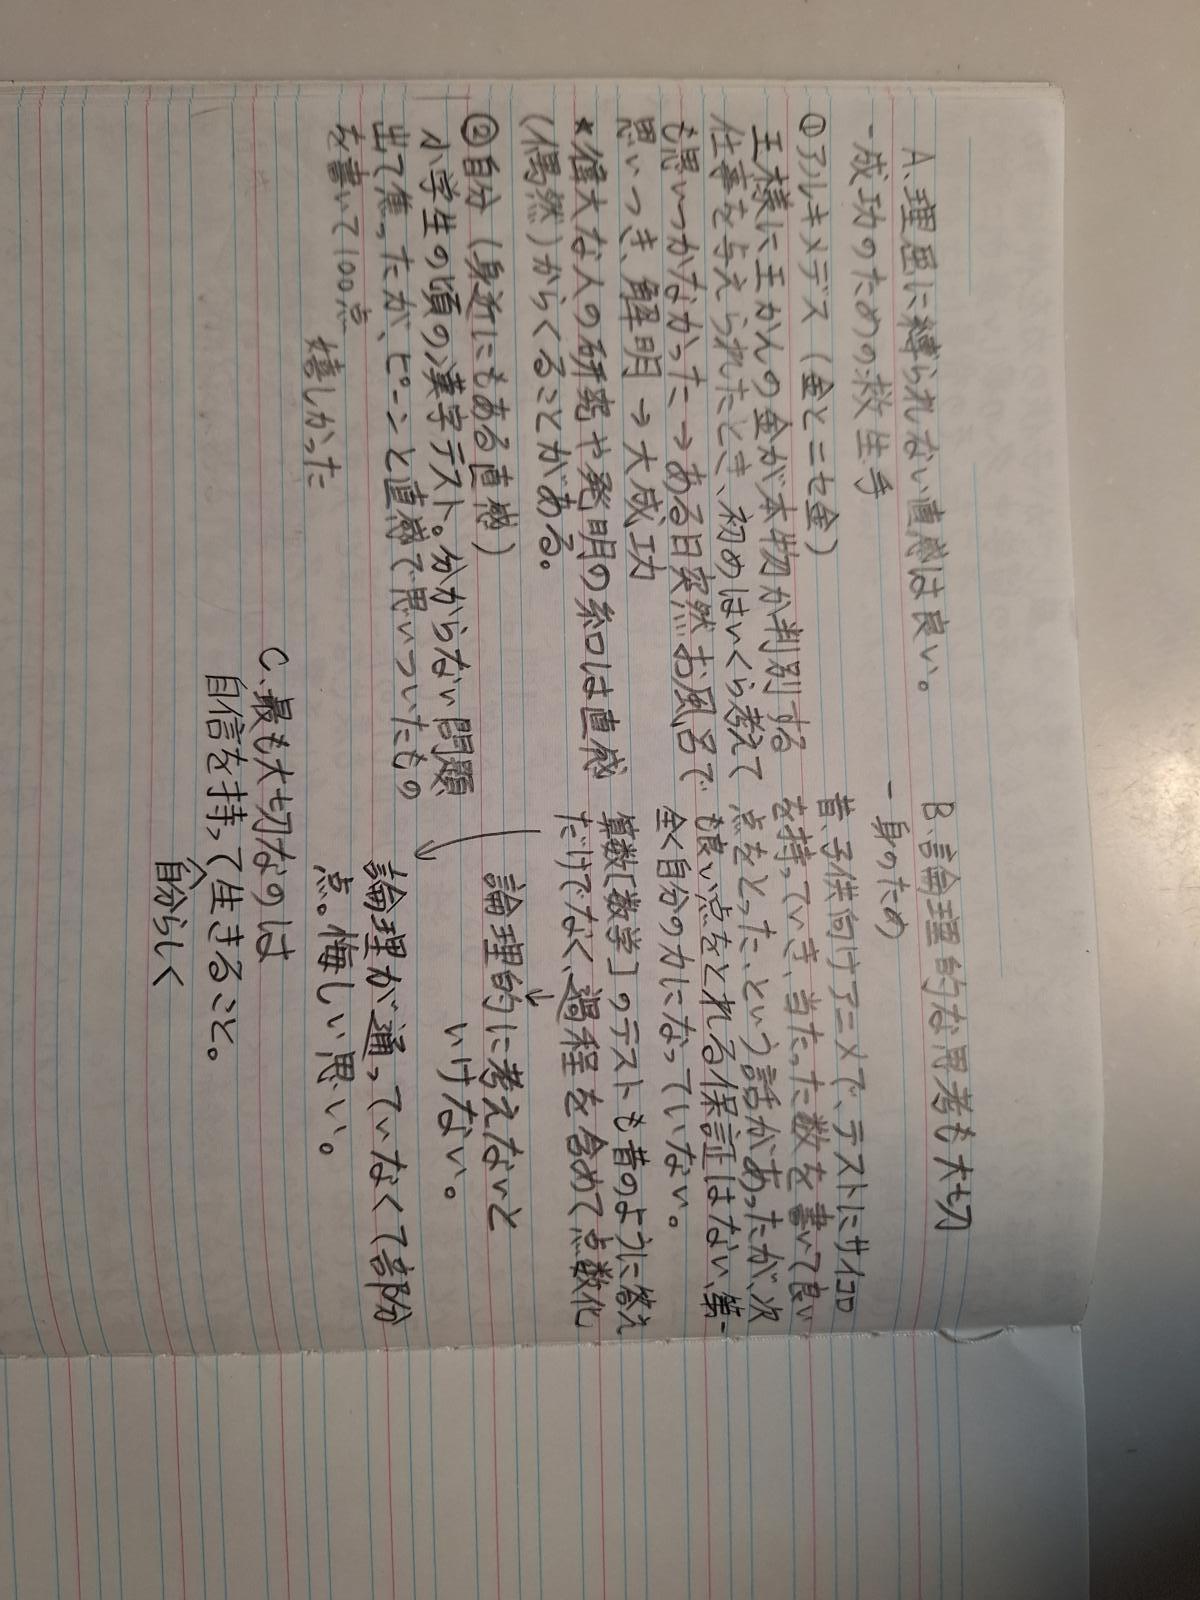 A.理屈に縛られない直感は良い。
-成功のための救生手
①アルキメデス（金とニセ金）
王様に王かんの金が本物か判別する
仕事を与えられたとき、初めはいくら考えて
も思いつかなかった→ある日突然お風呂で
思いつき、解明→大成功
*偉大な人の研究や発明の糸口は直感
（偶然）からくることがある。
②自分（身近にもある直感）
小学生の頃の漢字テスト。分からない問題
出て焦ったが、ピーンと直感で思いついたもの
を書いて100点
嬉しかった
B.論理的な思考も大切
-身のため
昔、子供向けアニメで、テストにサイコロ
を持っていき、当たった数を書いて良い
点をとった、という話があったが、次
も良い点をとれる保証はない、第一
全く自分の力になっていない。
算数[数学]のテストも昔のように答え
だけでなく、過程を含めて点数化
↓
論理的に考えないと
いけない。
論理が通っていなくて部分
点。悔しい思い。
C.最も大切なのは
自信を持って生きること。
自分らしく